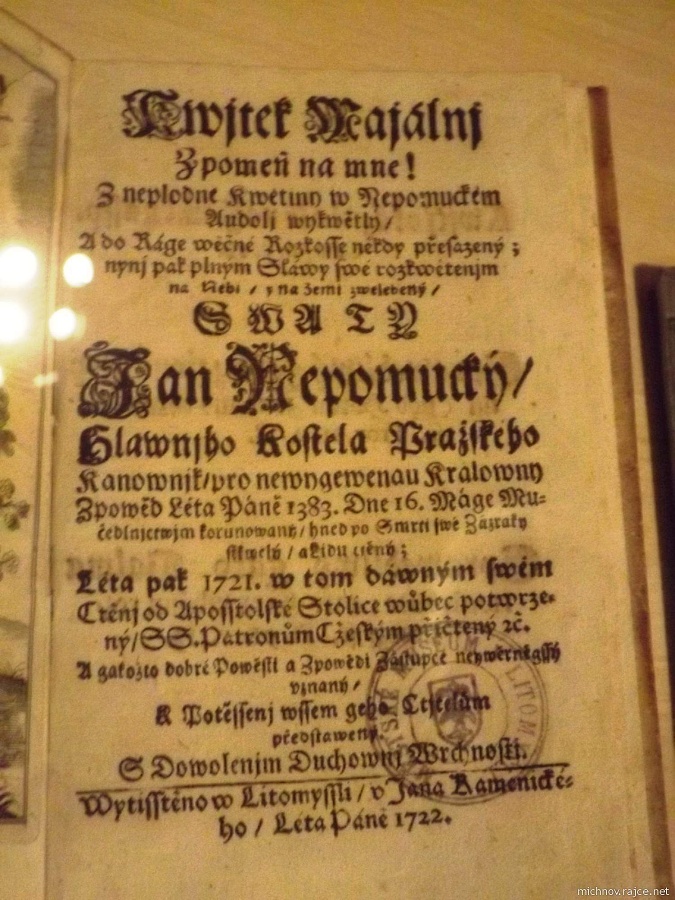 Kwjtek Majálnj
Zpomeň na mne!
Z neplodne Kwětiny w Nepomuckém
Audolj wykwětly/
A do Ráge wěčné Rozkosse někdy přesazený;
nynj pak plným Sláwy swé rozkwětenjm
na Nebi / y na Zemi zwelebený /
SWATY
Jan Nepomucký/
Hlawnjho Kostela Pražského
Kanownjk/pro newygewenau Kralowny
Zpowěd Léta Páně 1383. Dne 16. Máge Mu-
čedlnjctwjm korunowaný/ hned po Smrti swé Zázraky
skwělý / a Lidu ctěný;
Léta pak 1721. w tom dáwným swém
Ctěnj od Aposstolské Stolice wůbec potwrze-
ný/SS.Patronům Cžeským přičtený ꝛč.
A gakožto dobré Powěsti a Zpowědi Zástupce neywěrněgssý
vznaný/
K Potěssenj wssem geho Ctitelům
představený.
S Dowolenjm Duchownj Wrchnosti.
Wytisstěno w Litomyssli / v Jana Kamenické-
ho / Léta Páně 1722.
LITOM
michnov.rajce.net